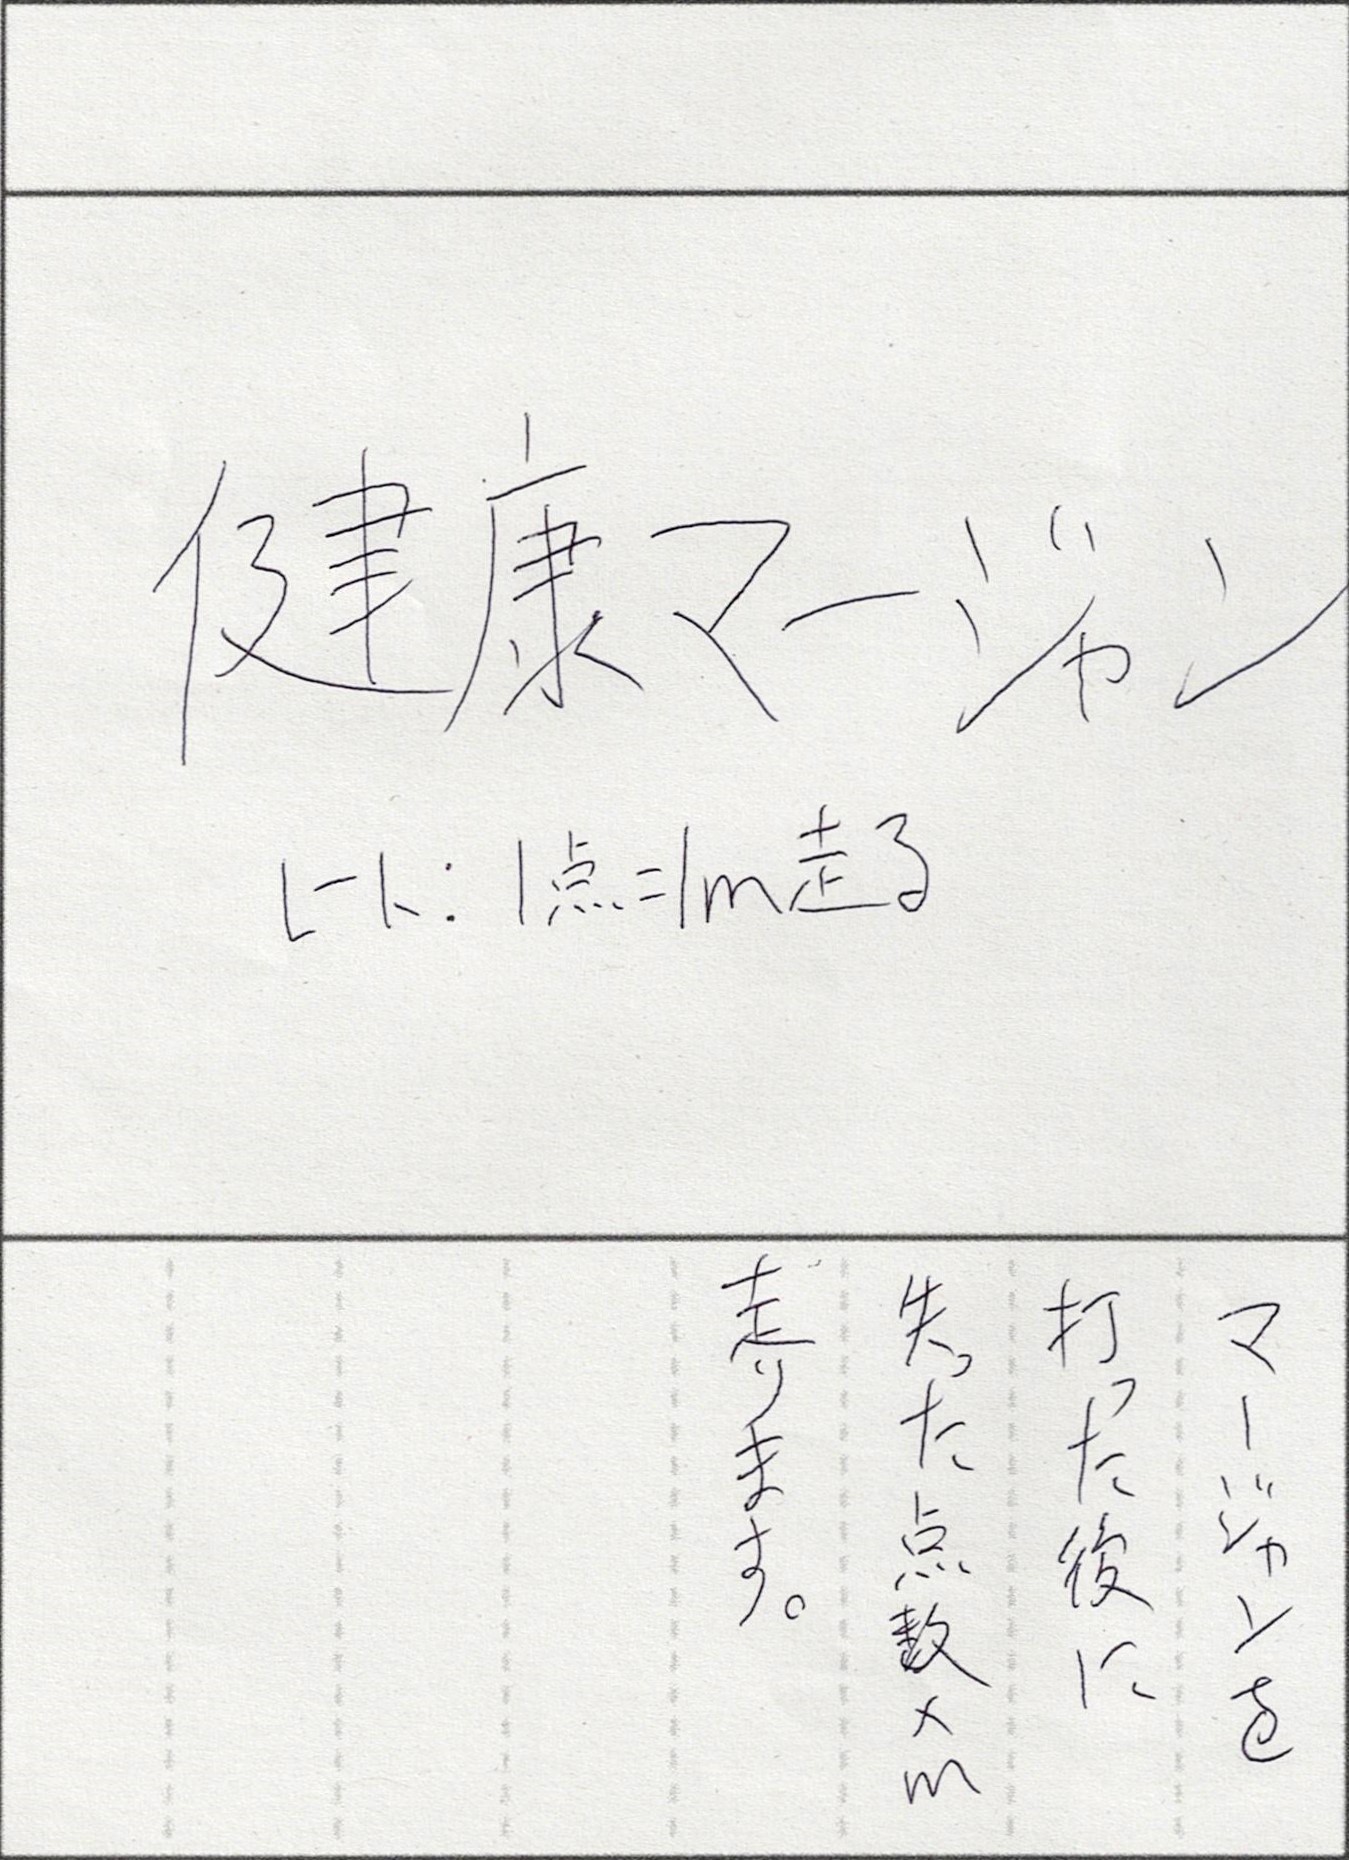 健康マージャン
レート:1点=1m走る
マージャンを
打った後に
失った点数×m
走ります。